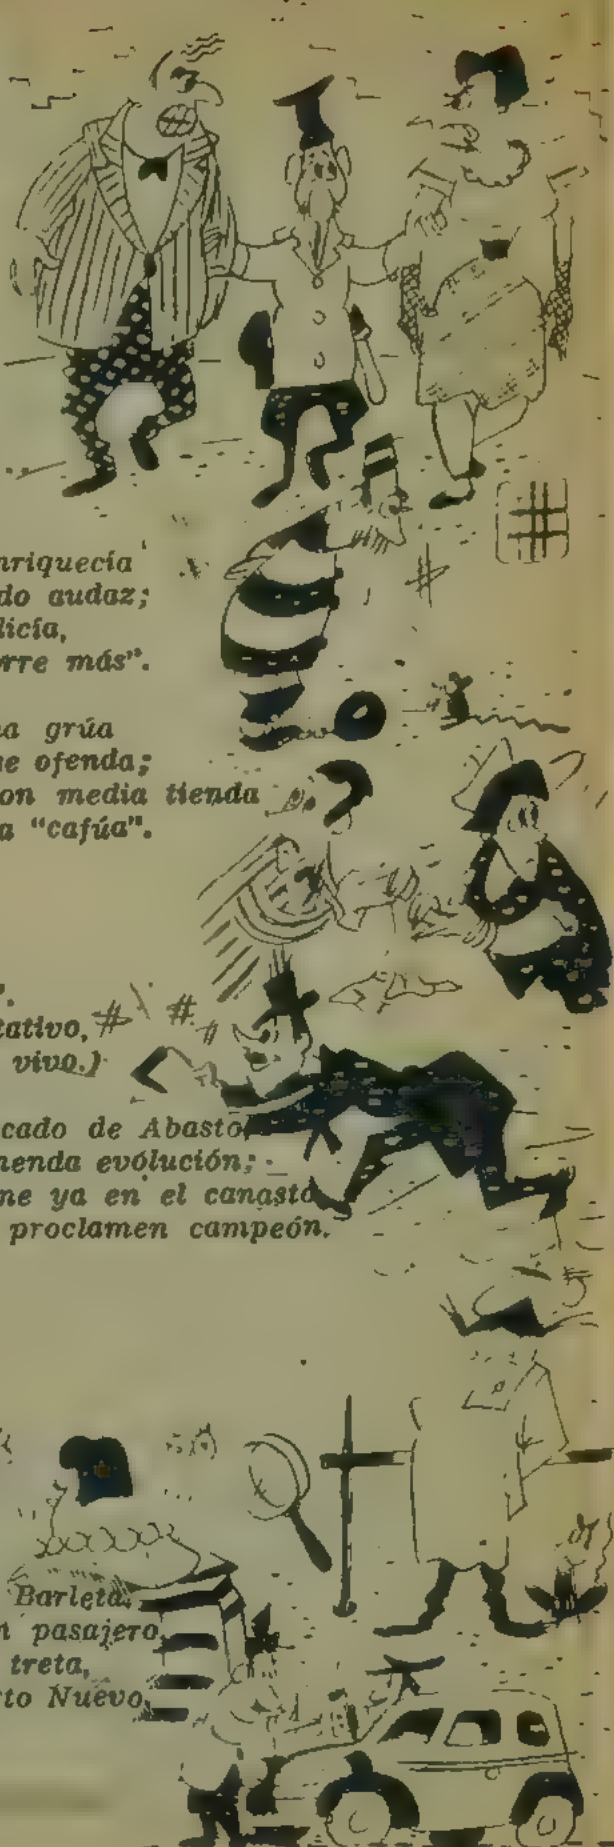 nriquecía
do audaz;
licía,
rre más".
na grúa
ne ofenda;
on media tienda
a "cafúa".
".
tativo,
vivo.)
cado de Abasto,
menda evolución;
ne ya en el canasto
proclamen campeón.
Barleta,
n pasajero
treta,
to Nuevo,